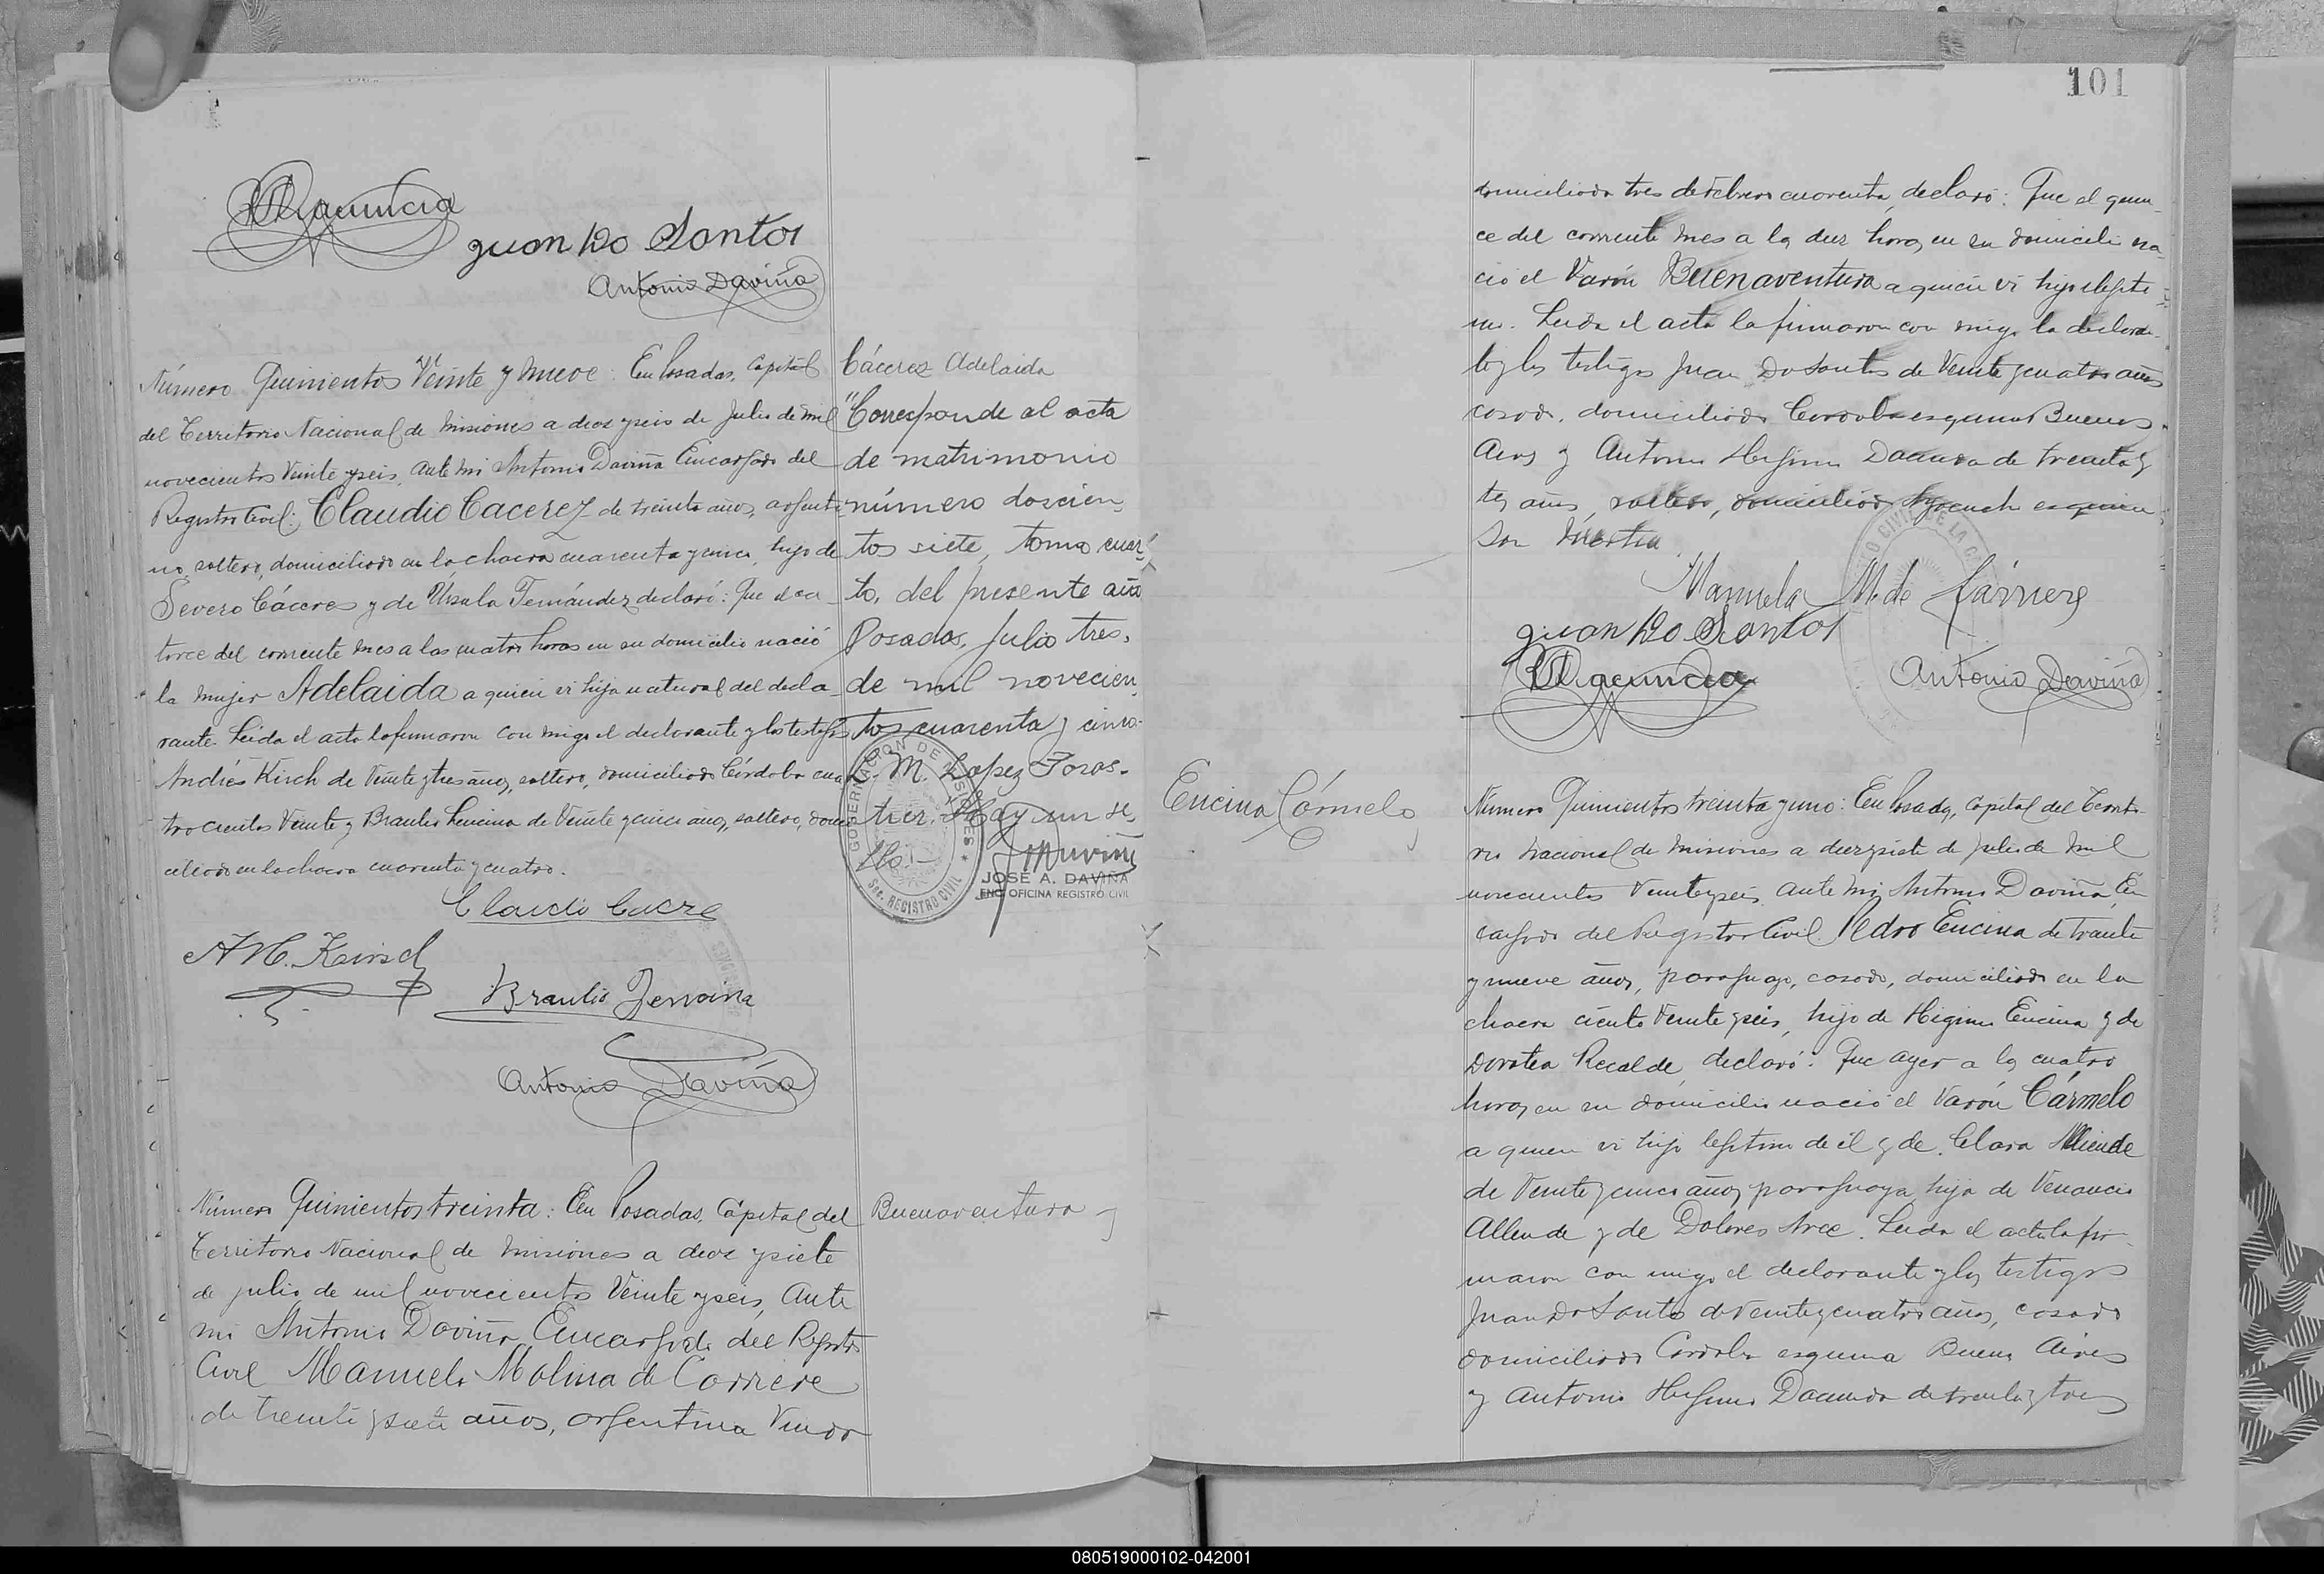 Juan Do Santos
Antonio Daviña
Número Quinientos Veinte y nueve: En Posadas, Capital
del Territorio Nacional de Misiones a diez y seis de Julio de mil
novecientos Veinte y seis, ante mi Antonio Daviña Encargado del
Registro Civil: Claudio Cacerez de treinta años, argenti-
no, soltero, domiciliado en la chacra cuarenta y cinco, hijo de
Severo Cáceres y de Úrsula Fernández declaró: Que el ca-
torce del corriente mes a las cuatro horas en su domicilio nació
la mujer Adelaida a quien vi hija natural del decla-
rante. Leida el acta la firmaron con migo el declarante y los testigos
Andrés Kirsch de Veinte y tres años, soltero, domiciliado Córdoba cua
trocientos Veinte y Braulio Lencina de Veinte y cinco años, soltero, domi
ciliado en la chacra cuarenta y cuatro.
Claudio Cacre
A H. Keirsch
Braulio
Antonio Daviña
Cácerez Adelaida
"Corresponde al acta
de matrimonio
número doscien
tos siete, tomo cuar
to, del presente año
Posadas, Julio tres,
de mil novecien
tos cuarenta y cinco-
L. M. Lopez Foros-
tier. Hay un se
llo.-
GOBERNACION DE MISIONES
SEC. REGISTRO CIVIL
JOSÉ A. DAVIÑA
ENC. OFICINA REGISTRO CIVIL
Número Quinientos treinta: En Posadas, Capital del
Territorio Nacional de Misiones a diez y siete
de julio de mil novecientos Veinte y seis, Ante
mi Antonio Daviña Encargado del Registro
Civil Manuela Molina de Carrere
de treinta y siete años, argentina Viuda
Buenaventura
101
domiciliada tres de Febrero cuarenta, declaró: Que el quin-
ce del corriente mes a las diez horas en su domicilio na
ció el Varón Buenaventura a quien vi hijo legiti-
mo. Leida el acta la firmaron con migo la declaran-
te y los testigos Juan Do Santos de Veinte y cuatro años
casado, domiciliado Cordoba esquina Buenos
Aires y Antonio Higinio Dacunda de treinta y
tres años, soltero, domiciliado Ayacucho esquina
San Martin.
Manuela M. de Cárrere
Juan Do Santos
Antonio Daviña
Encina Cármelo
Número Quinientos treinta y uno: En Posadas, Capital del Territo-
rio Nacional de Misiones a diez y siete de julio de mil
novecientos Veinte y seis, ante mi Antonio Daviña, En
cargado del Registro Civil. Pedro Encina de treinta
y nueve años, paraguayo, casado, domiciliado en la
chacra ciento Veinte y seis, hijo de Higinio Encina y de
Dorotea Recalde, declaró: Que ayer a las cuatro
horas en su domicilio nació el Varón Cármelo
a quien vi hijo legitimo de él y de Clara Alliende
de Veinte y cinco años paraguaya, hija de Venancio
Allende y de Dolores Arce. Leida el acta la fir-
maron con migo el declarante y los testigos
Juan Do Santos de Veinte y cuatro años, casado
domiciliado Cordoba esquina Buenos Aires
y Antonio Higinio Dacunda de treinta y tres
080519000102-042001